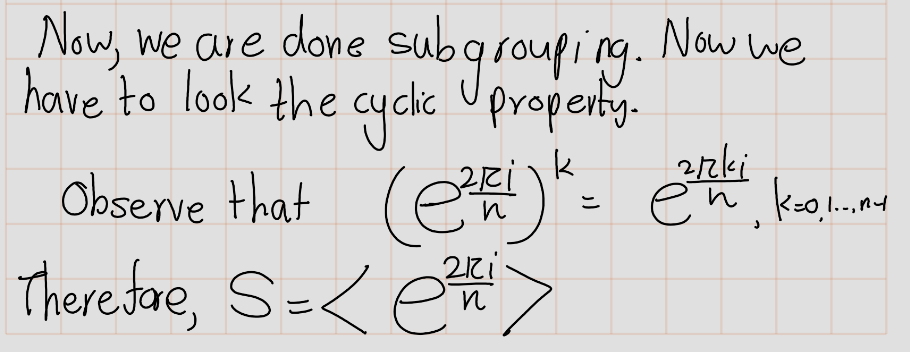 Now, we are done subgrouping. Now we
have to look the cyclic property.
Observe that (e^{\frac{2πi}{n}})^k = e^{\frac{2πki}{n}}, k=0,1..,n-1
Therefore, S = < e^{\frac{2πi}{n}} >